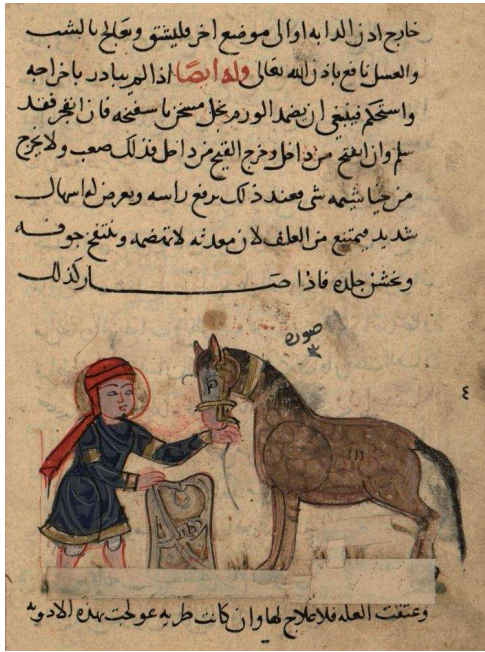 خارج اذن الدابه او الى موضع اخر فليشق ويعالج بالشب
والعسل نافع باذن الله تعالى وله ايضا اذا لم يبادر باخراجه
واستحكم فينبغي ان يضمد الورم بخل مسخن باسفنجه فان انفجر فقد
سلم وان انفتح من داخل وخرج القيح من داخل فذلك صعب ولا يخرج
من خياشيمه شى فعند ذلك يرفع راسه ويعرض له اسهال
شديد فيمتنع من العلف لان معدته لا تهضمه وينتفخ جوفه
ويخشن جلده فاذا صار كذلك
صوره
٤
وعتقت العله فلا علاج لها وان كانت طريه عولجت بهذه الادويه